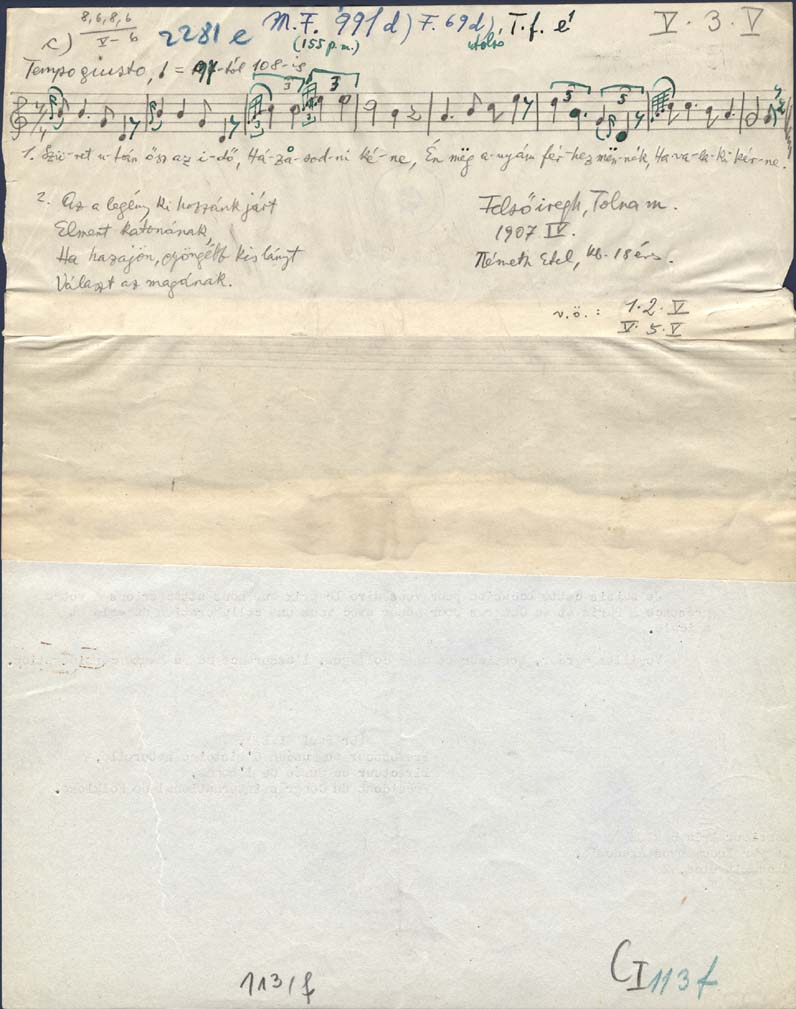 c) 8,6,8,6
V – 6
2281 e M.F. 991 d) F. 69 d), T.f. e¹ V. 3. V
(155 p.m.) utolsó
Tempo giusto, = 97-től 108-ig
3 3 5 5
3 3
1. Szü-ret u-tán ősz az i-dő, Há-za-sod-ni ké-ne, Én még a-nyám fér-hez mën-nék, Ha va-la-ki kér-ne.
2. Az a legény ki hozzánk járt
Elment katonának,
Ha hazajön, gyöngébb kislányt
Választ az magának.
Felsőiregh, Tolna m.
1907 IV.
Németh Etel, kb. 18 évs.
v.ö.: 1. 2. V
V. 5. V
113/f
CI 113 f